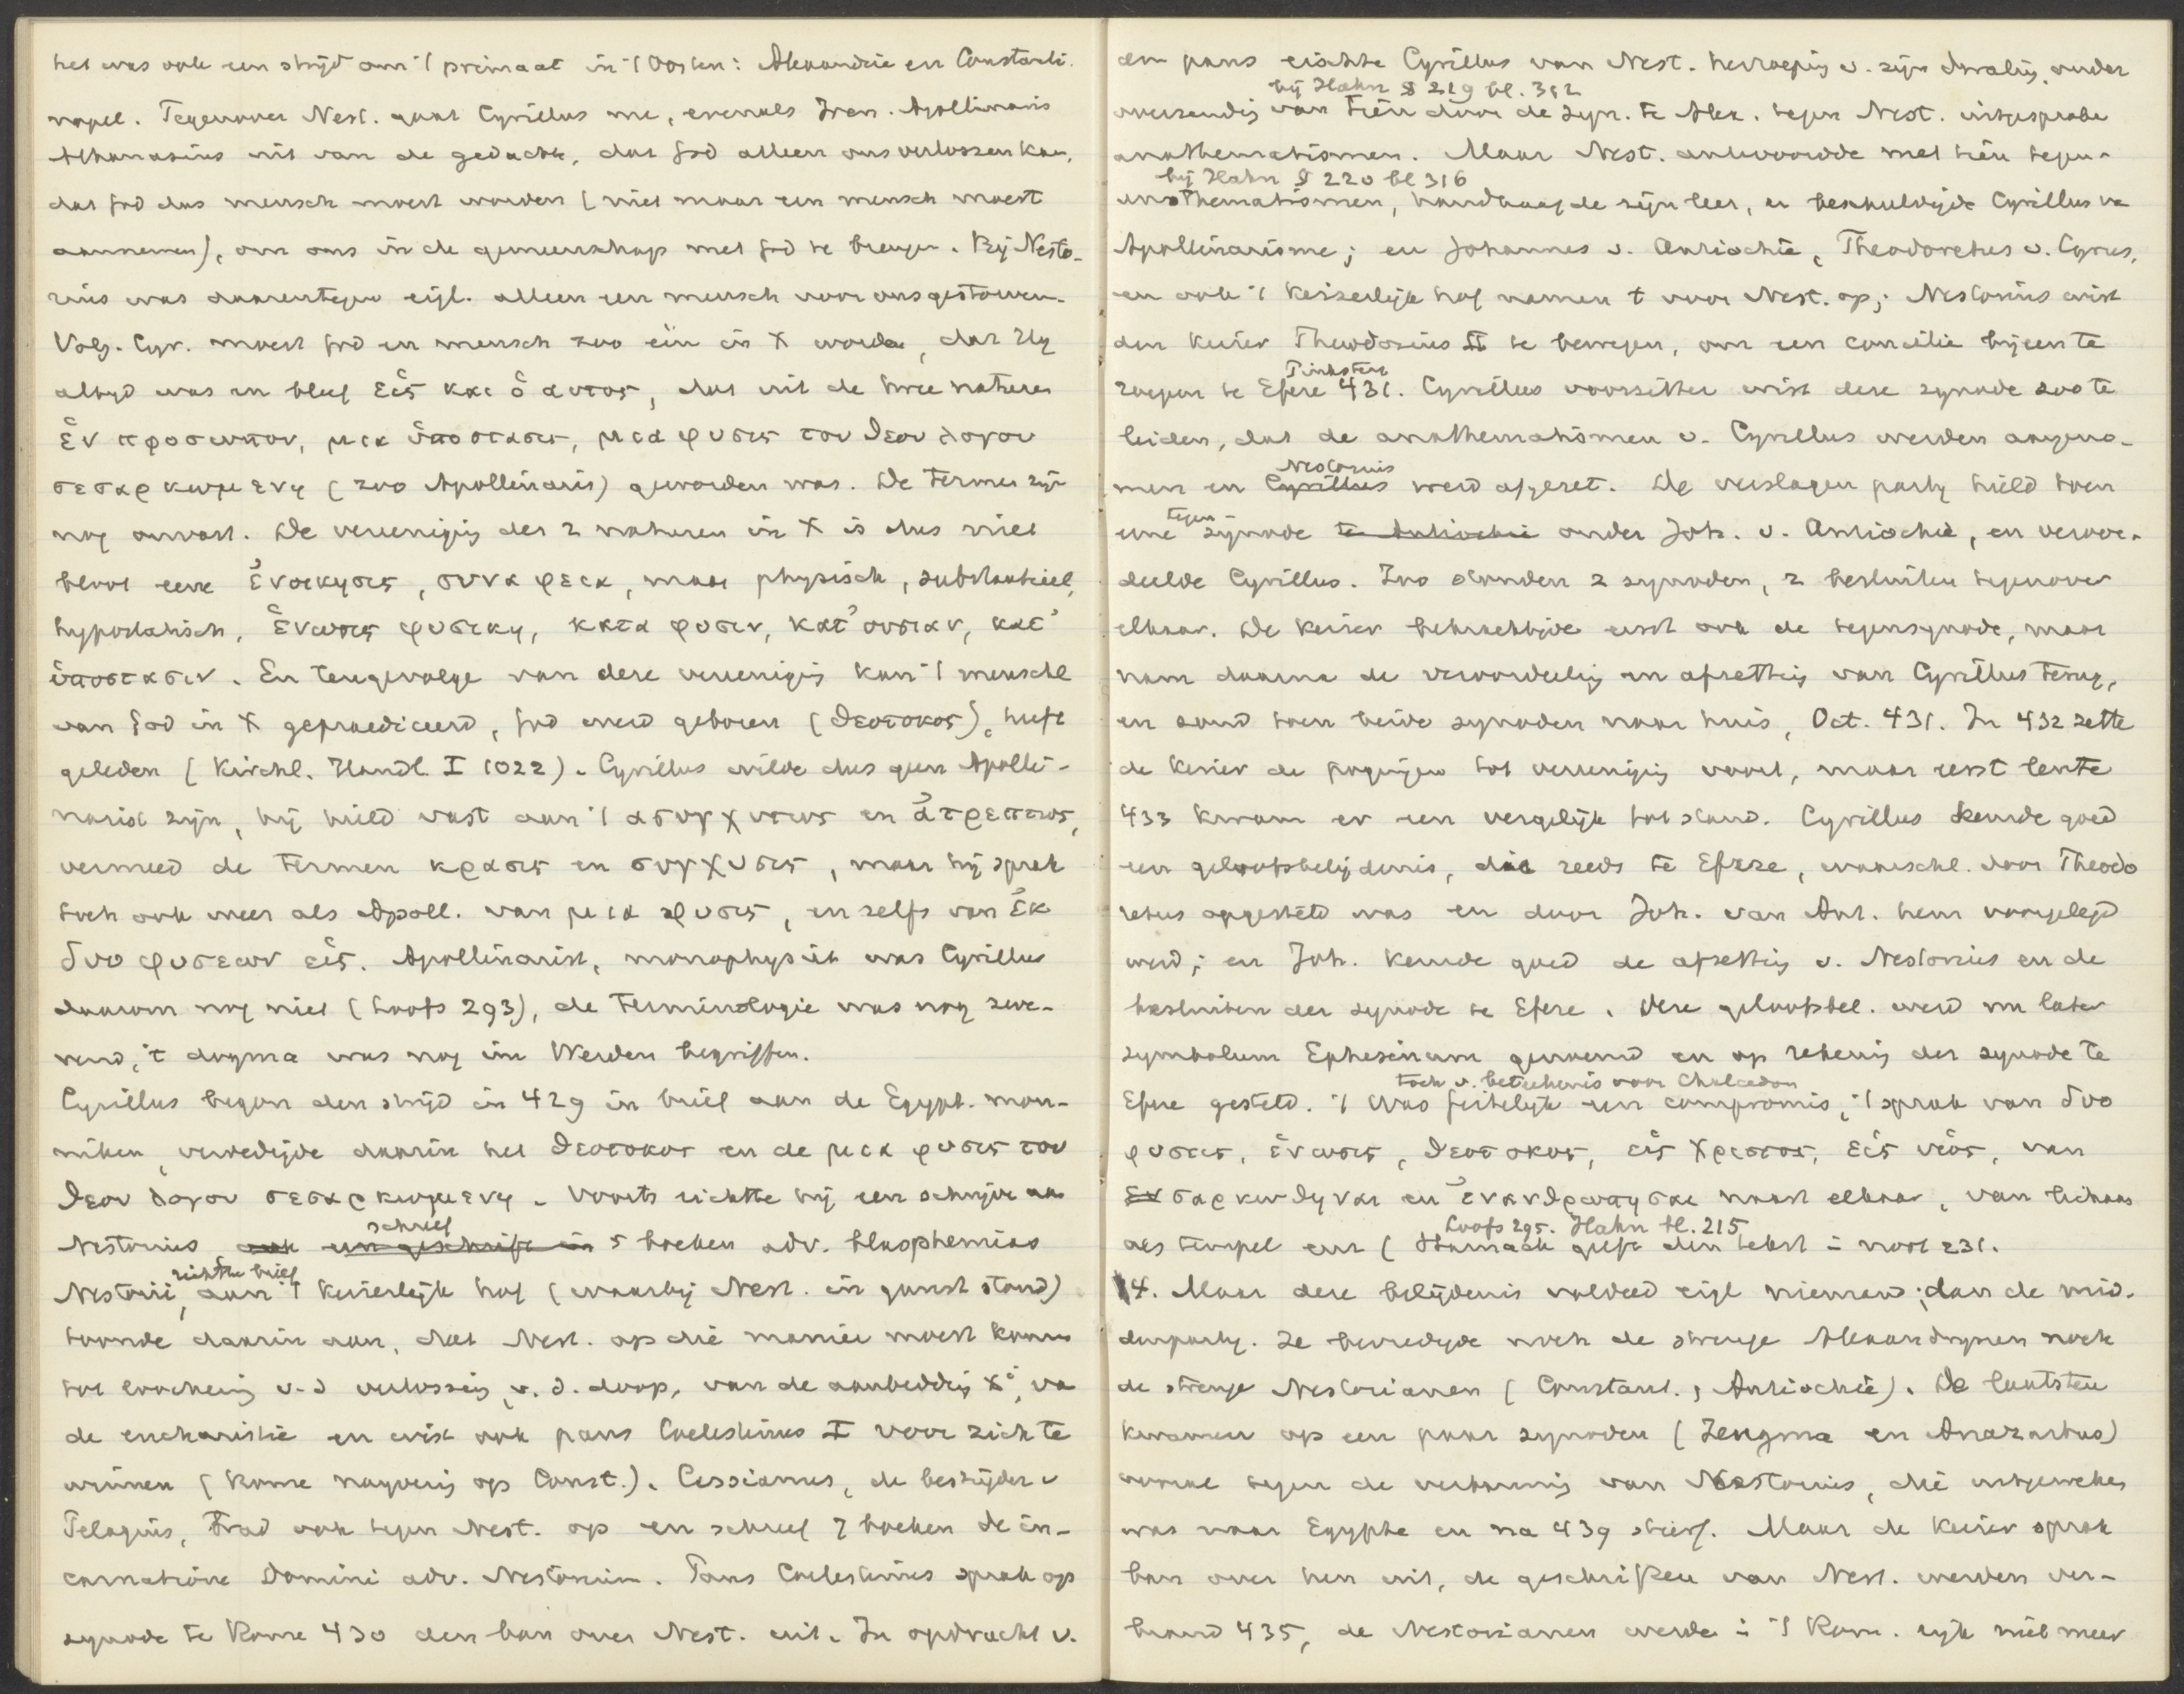 het was ook een strijd om 't primaat in 't Oosten: Alexandrie en Constanti-
nopel. Tegenover Nest. gaat Cyrillus nu, evenals Iren. Apollinaris
Athanasius uit van de gedachte, dat God alleen ons verlossen kan,
dat God dus mensch moest worden (niet maar een mensch moest
aannemen), om ons in de gemeenschap met God te brengen. Bij Nesto-
rius was daarentegen eigl. alleen een mensch voor ons gestorven.
Volg. Cyr. moest God en mensch zoo één in X worden, dat Hij
altijd was en bleef εἱς και ὁ αυτος, dat uit de twee naturen
ἑν προσωπον, μια ὑποστασις, μια φυσις του θεου λογου
σεσαρκωμενη (zoo Apollinaris) geworden was. De termen zijn
nog onvast. De vereeniging der 2 naturen in X is dus niet
bloot eene ἐνοικησις, συναφεια, maar physisch, substantieel,
hypostatisch, ἑνωσις φυσικη, κατα φυσιν, κατ' ουσιαν, καθ'
ὑποστασιν. En tengevolge van deze vereeniging kan 't menschel.
van God in X gepraediceerd, God werd geboren (θεοτοκος), heeft
geleden (Kirchl. Handl. I 1022). Cyrillus wilde dus geen Apolli-
narist zijn, hij hield vast aan 't ασυγχυτως en ἀτρεπτως,
vermeed de termen κρασις en συγχυσις, maar hij sprak
toch ook weer als Apoll. van μια φυσις, en zelfs van ἐκ
δυο φυσεων εἱς. Apollinarist, monophysiet was Cyrillus
daarom nog niet (Loofs 293), de terminologie was nog zwe-
vend, 't dogma was nog im Werden begriffen.
Cyrillus begon den strijd in 429 in brief aan de Egypt. mon-
niken, verdedigde daarin het θεοτοκος en de μια φυσις του
θεου λογου σεσαρκωμενη. Voorts richtte hij een schrijven aan
Nestorius, ook een geschrift in schreef 5 boeken adv. blasphemias
Nestorii, richtte brief aan 't keizerlijk hof (waarbij Nest. in gunst stond)
toonde daarin aan, dat Nest. op die manier moest komen
tot loochening v. d. verlossing, v. d. doop, van de aanbidding Xi, van
de eucharistie en wist ook paus Coelestinus I voor zich te
winnen (Rome naijverig op Const.). Cassianus, de bestrijder v.
Pelagius, trad ook tegen Nest. op en schreef 7 boeken de in-
carnatione Domini adv. Nestorium. Paus Coelestinus sprak op
synode te Rome 430 den ban over Nest. uit. In opdracht v.
den paus eischte Cyrillus van Nest. herroeping v. zijn dwaling onder
bij Hahn § 219 bl. 312
overzending van tien door de syn. te Alex. tegen Nest. uitgesproken
anathematismen. Maar Nest. antwoordde met tien tegen-
bij Hahn § 220 bl 316
anathematismen, handhaafde zijn leer, en beschuldigde Cyrillus van
Apollinarisme; en Johannes v. Antiochie, Theodoretus v. Cyrus,
en ook 't keizerlijk hof namen 't voor Nest. op; Nestorius wist
den keizer Theodosius II te bewegen, om een concilie bijeen te
roepen te Efeze Pinksteren 431. Cyrillus voorzitter wist deze synode zoo te
leiden, dat de anathematismen v. Cyrillus werden aangeno-
men en Cyrillus Nestorius werd afgezet. De verslagen partij hield toen
eene tegen synode te Antiochie onder Joh. v. Antiochie, en veroor-
deelde Cyrillus. Zoo stonden 2 synoden, 2 besluiten tegenover
elkaar. De keizer bekrachtigde eerst ook de tegensynode, maar
nam daarna de veroordeeling en afzetting van Cyrillus terug,
en zond toen beide synoden naar huis, Oct. 431. In 432 zette
de keizer de pogingen tot vereeniging voort, maar eerst lente
433 kwam er een vergelijk tot stand. Cyrillus keurde goed
een geloofsbelijdenis, die reeds te Efeze, waarschl. door Theodo
retus opgesteld was en door Joh. van Ant. hem voorgelegd
werd; en Joh. keurde goed de afzetting v. Nestorius en de
besluiten der synode te Efeze. Deze geloofsbel. werd nu later
symbolum Ephesinum genoemd en op rekening der synode te
toch v. beteekenis voor Chalcedon
Efeze gesteld. 't Was feitelijk een compromis, 't sprak van δυο
φυσεις, ἑνωσις, θεοτοκος, εἱς χριστος, εἱς υἱος, van
σαρκωθηναι en ἐνανθρωπησαι naast elkaar, van lichaam
Loofs 295. Hahn bl. 215
als tempel enz (Harnack geeft den tekst in noot 231.
4. Maar deze belijdenis voldeed eigl niemand; dan de mid-
denpartij. Ze bevredigde noch de strenge Alexandrijnen noch
de strenge Nestorianen (Constant., Antiochie). De laatsten
kwamen op een paar synoden (Zeugma en Anazarbus)
vooral tegen de verbanning van Nestorius, die uitgeweken
was naar Egypte en na 439 stierf. Maar de keizer sprak
ban over hen uit, de geschriften van Nest. werden ver-
brand 435, de Nestorianen werden in 't Rom. rijk niet meer